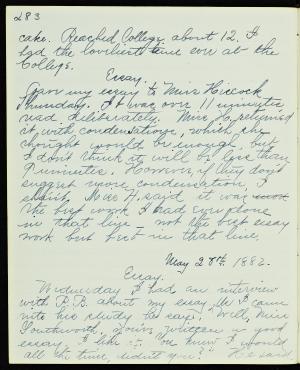 283
cake. Reached College about 12. I
had the loveliest time ever at the
College.
Essay.
Gave my essay to Miss Hiscock
Thursday. It was over 11 minutes
read deliberately. Miss H. returned
it with condensations, which she
thought would be enough, but
I don't think it will be less than
9 minutes. However, if they don't
suggest more condensation, I
shan't. Miss H. said it was
the best work I had ever done
in that line — not the best essay
work but best in that line.
May 27th. 1882.
Essay.
Wednesday I had an interview
with P.B. about my essay. As I came
into his study he says, "Well, Miss
Southworth, you've written a good
essay. I like it. You knew I would
all the time, didn't you?" He said